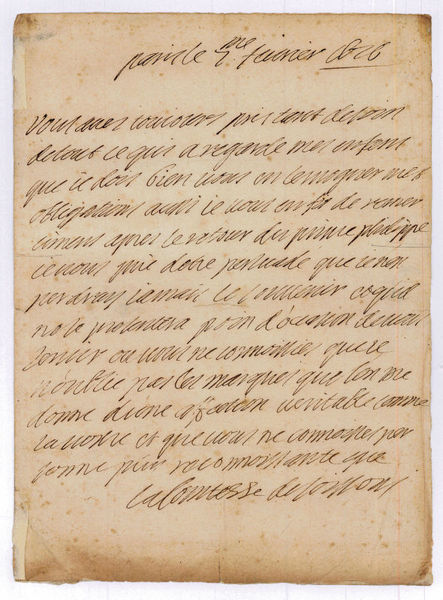 paris le 7me feurier 1676
Vous aues tousiours pris tant de soin
de tout ce qui a regarde mes enfens
que ie dois bien uous en temogner mes
obligations aussi ie uous en fis de remer
ciment apres le retour du prince philippe
ie uous prie detre persuade que ie nen
perdrai iamais le souuenir et quil
ne se presentera poin d'ocasion de uous
seruir ou uous ne connoissies que ie
noublie pas les marques que lon me
donne d'une afection ueritable comme
la uostre et que uous ne connoistres per
sonne plus reconnoissante que
la Comtesse de soissons